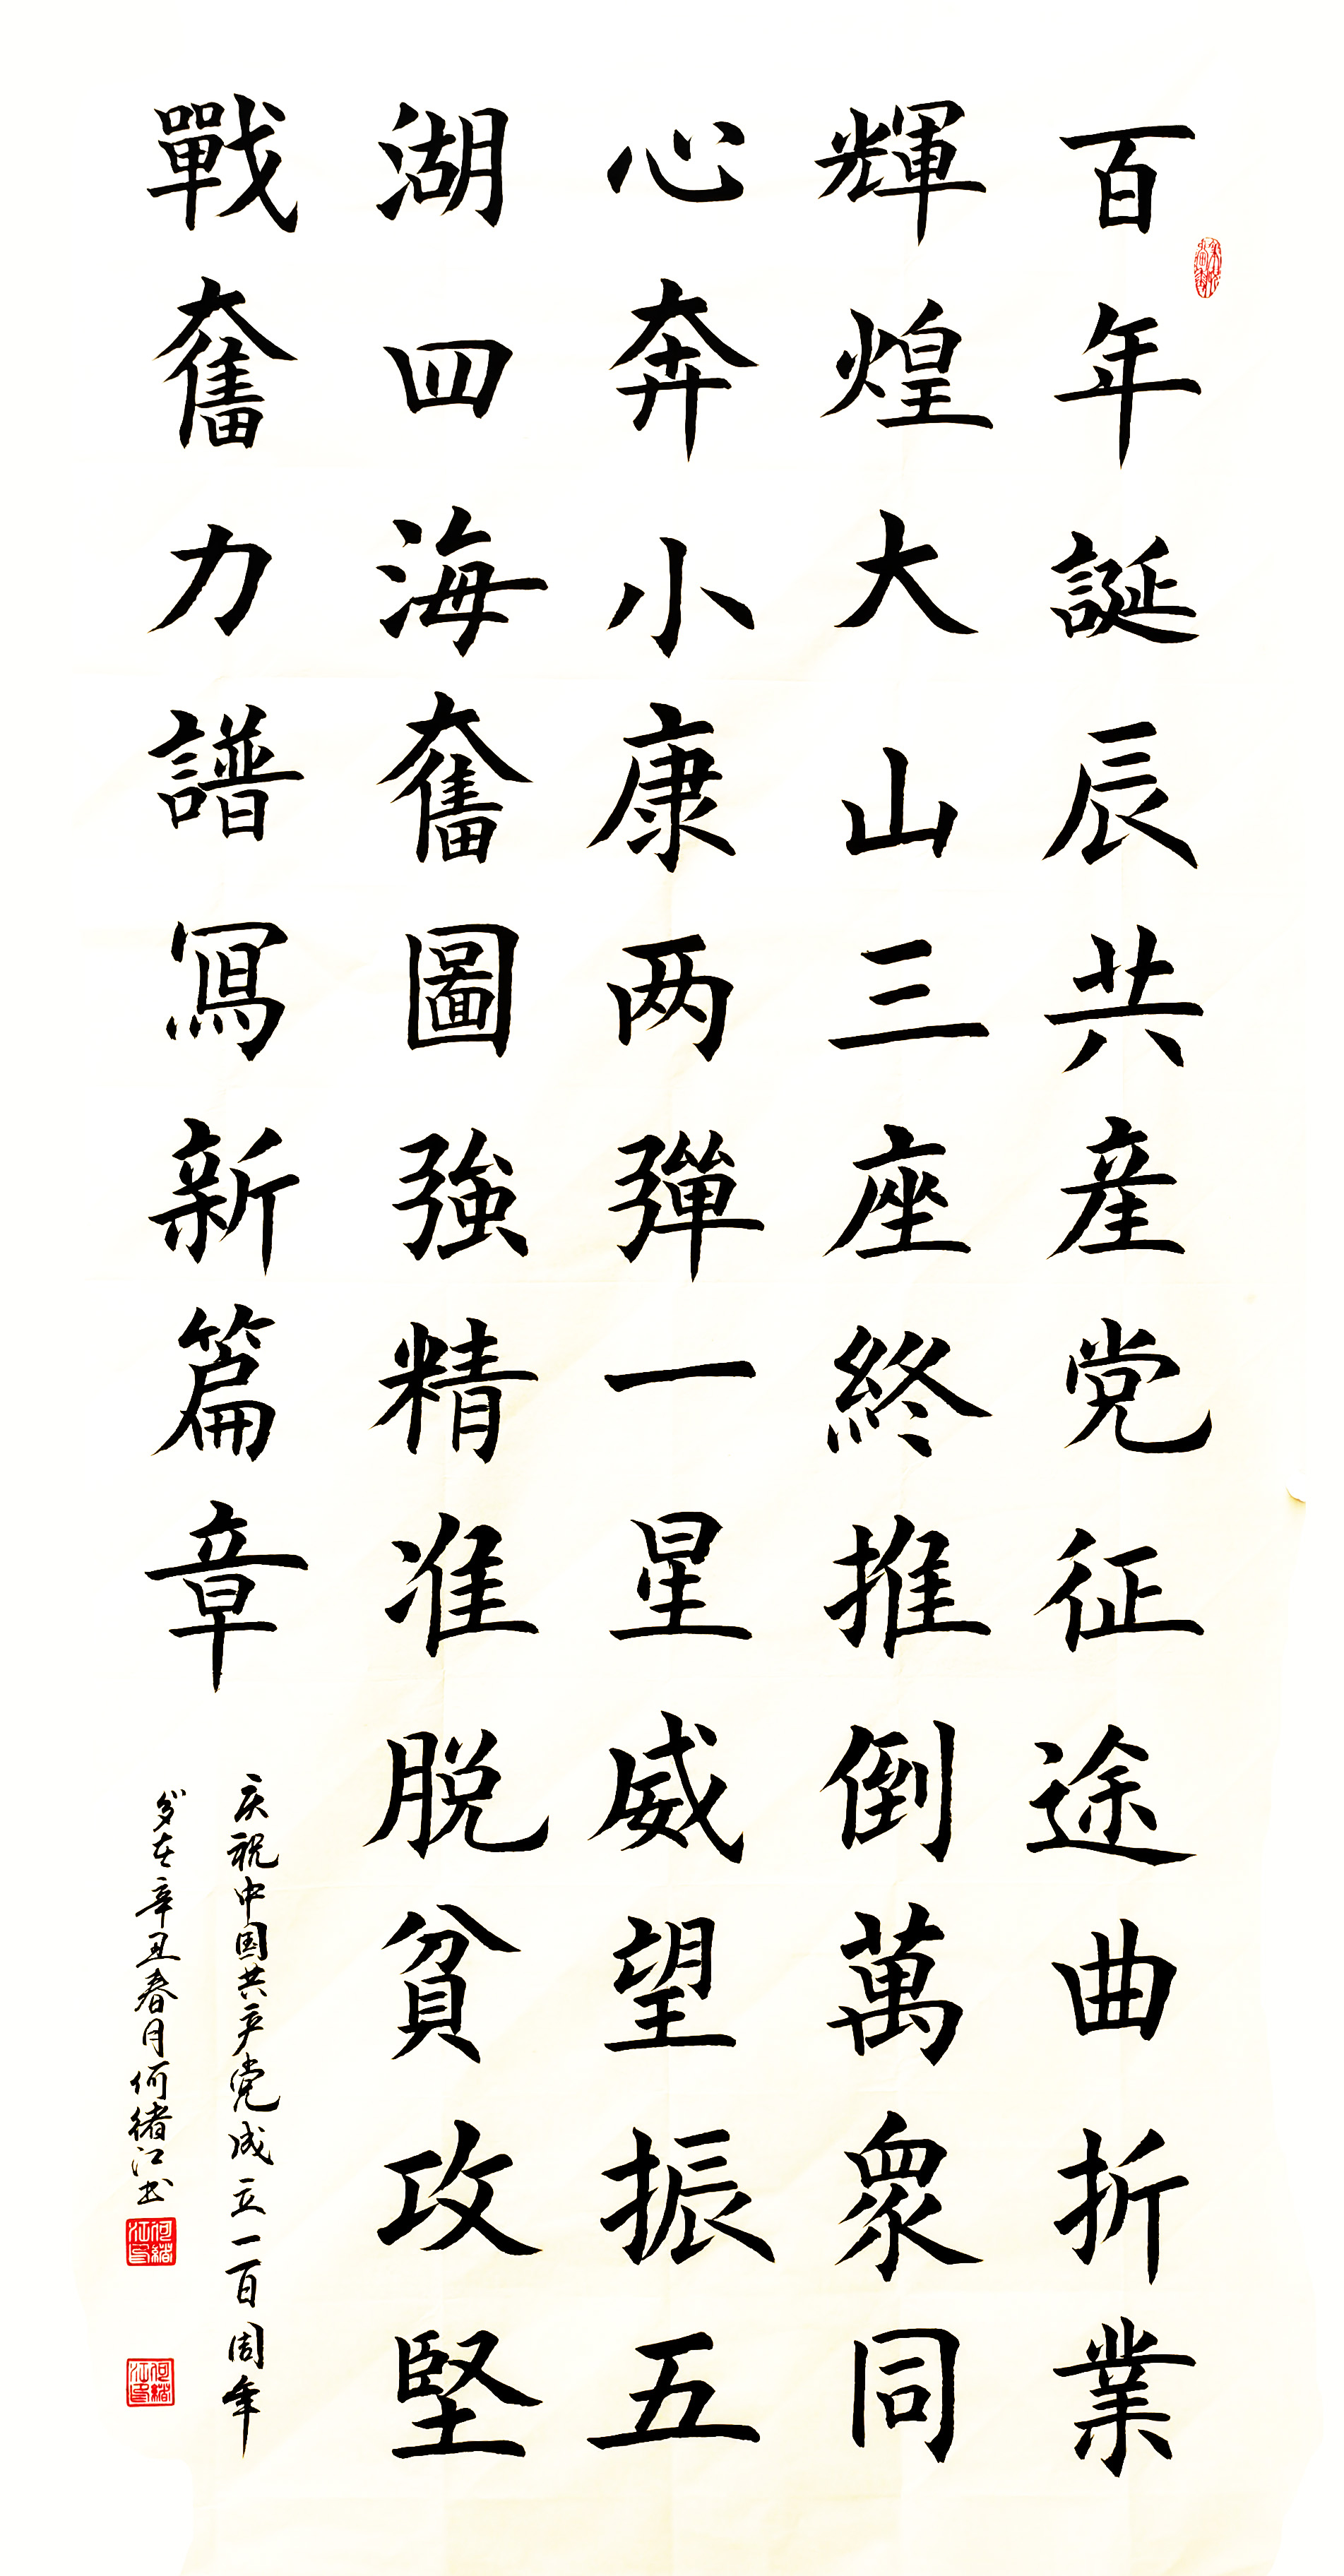 百年誕辰共産党征途曲折業
輝煌大山三座終推倒萬眾同
心奔小康两彈一星威望振五
湖四海奮圖強精准脱貧攻堅
戰奮力譜寫新篇章
庆祝中国共产党成立一百周年
岁在辛丑春月何绪江书